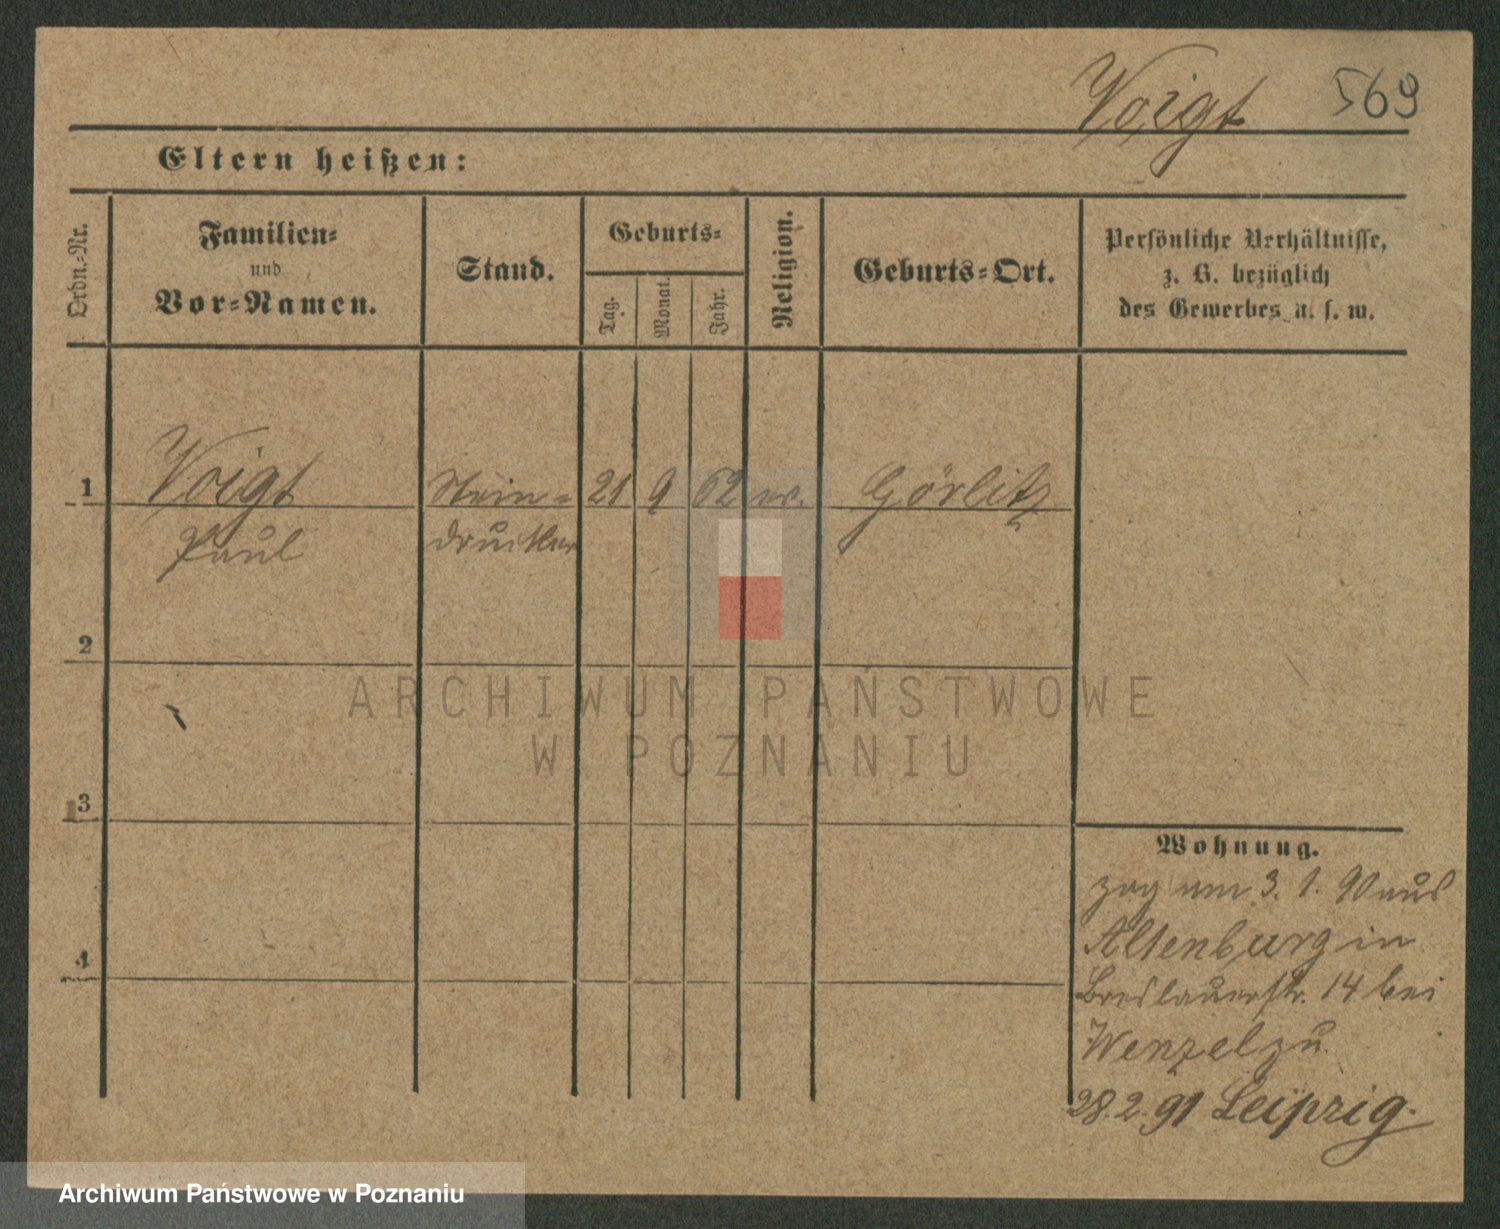 Voigt 569
Eltern heißen:
Ordn.-Nr.
Familien-
und
Vor-Namen.
Stand.
Geburts-
Tag.
Monat.
Jahr.
Religion.
Geburts-Ort.
Persönliche Verhältnisse,
z. B. bezüglich
des Gewerbes u. s. w.
1 Voigt Stein- 21 9 62 ev. Görlitz
Paul drucker
2
3
4
Wohnung.
zog am 3. 1. 90 aus
Altenburg in
Breslauerstr. 14 bei
Wenzel zu
28.2.91 Leipzig.
ARCHIWUM PAŃSTWOWE
W POZNANIU
Archiwum Państwowe w Poznaniu